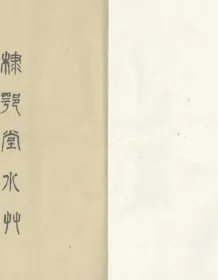 棣鄂堂水艸